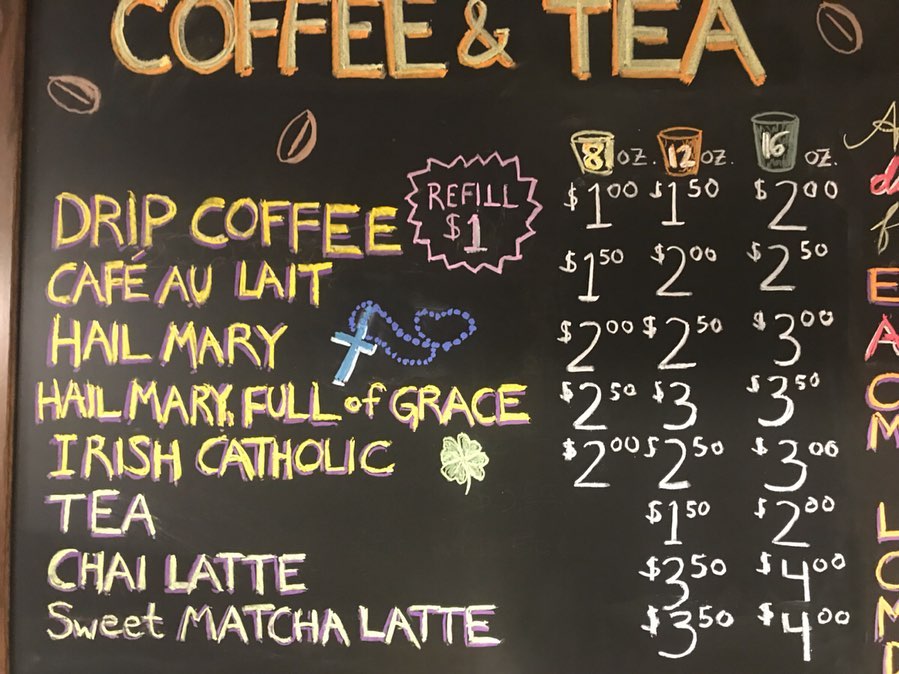 COFFEE & TEA
8 OZ. 12 OZ. 16 OZ.
DRIP COFFEE REFILL $1 $1.00 $1.50 $2.00
CAFÉ AU LAIT $1.50 $2.00 $2.50
HAIL MARY $2.00 $2.50 $3.00
HAIL MARY, FULL of GRACE $2.50 $3 $3.50
IRISH CATHOLIC $2.00 $2.50 $3.00
TEA $1.50 $2.00
CHAI LATTE $3.50 $4.00
Sweet MATCHA LATTE $3.50 $4.00